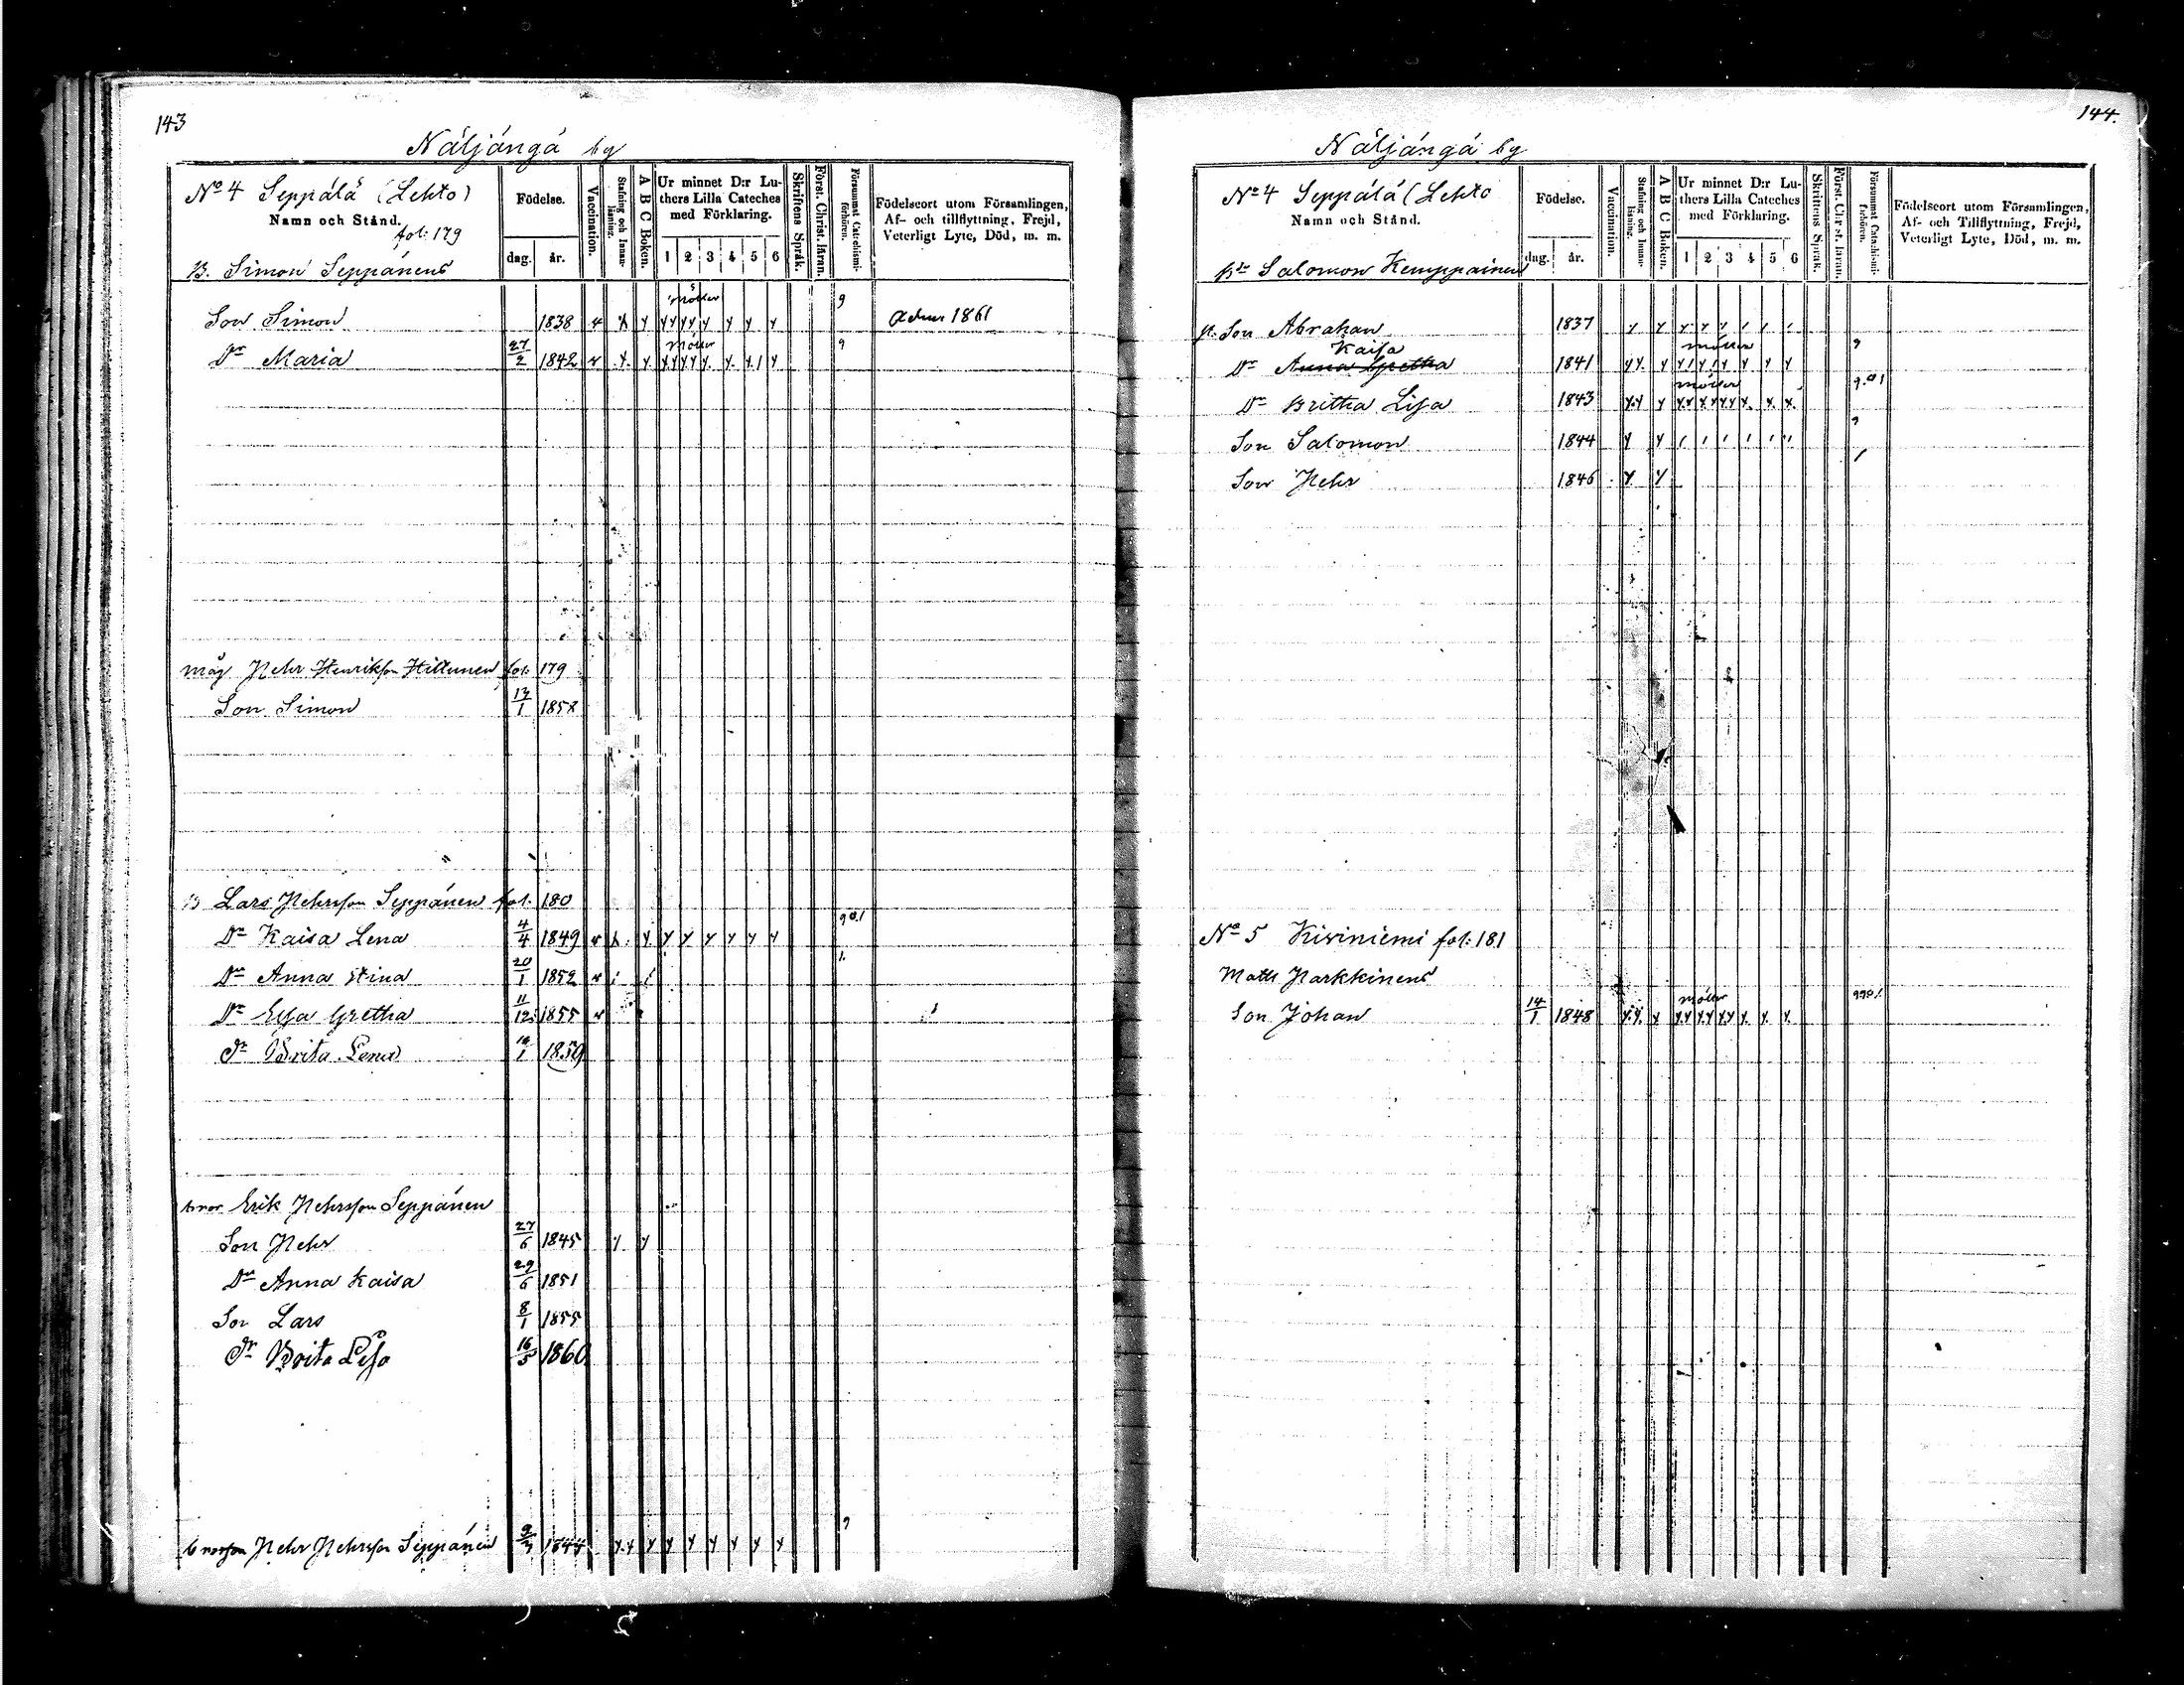 143
Näljängä by
No 4 Seppälä (Lehto)
Namn och Stånd.
fol: 179
B. Simon Seppänens
Födelse.
dag. år.
Vaccination.
Stafning och Innanläsning.
A B C Boken.
Ur minnet D:r Lu-
thers Lilla Cateches
med Förklaring.
1 2 3 4 5 6
Skriftens Språk.
Först. Christ.läran.
Försummat Catechismi-
förhören.
Födelseort utom Församlingen,
Af- och tillflyttning, Frejd,
Veterligt Lyte, Död, m. m.
Son Simon 1838 möter 9 adm 1861
Dr Maria 27/2 1842 möter 9
måg Pehr Henriksson Hiltunen fol: 179
Son Simon 13/1 1858
B Lars Pehrsson Seppänen fol. 180
Dr Kaisa Lena 4/4 1849 9 0.1
Dr Anna Stina 20/1 1852 1.
Dr Elsa Gretha 11/12 1855
Dr Brita Lena 1859
bror Erik Pehrsson Seppänen
Son Pehr 27/6 1845
Dr Anna Kaisa 29/6 1851
Son Lars 8/1 1855
Dr Brita Lisa 16/5 1860
brorson Pehr Pehrsson Seppänen 1844 9
144.
Näljängä by
No 4 Seppälä (Lehto
Namn och Stånd.
Bdr Salomon Kemppainen
Födelse.
dag. år.
Vaccination.
Stafning och Innanläsning.
A B C Boken.
Ur minnet D:r Lu-
thers Lilla Cateches
med Förklaring.
1 2 3 4 5 6
Skriftens Språk.
Först. Christ. läran.
Försummat Catechismi-
förhören.
Födelseort utom Församlingen,
Af- och Tillflyttning, Frejd,
Veterligt Lyte, Död, m. m.
Son Abraham 1837
Kaisa möter 9
Dr Anna Gretha 1841
Dr Britha Lisa 1843 möter 9.0 1
Son Salomon 1844 9
Son Pehr 1846 1
No 5 Kiviniemi fol: 181
Math Parkkinens
Son Johan 14/1 1848 möter 990/.